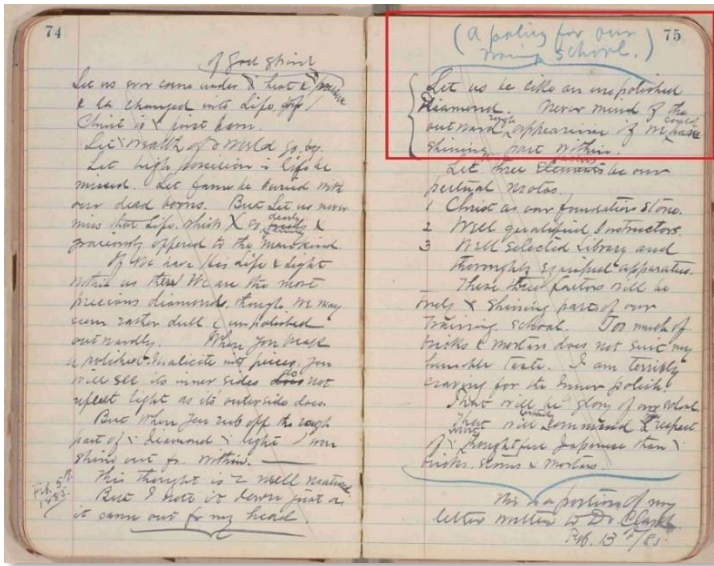 74
of God Spirit
Let us ever come under heat &
& be changed into Life of
Christ is just born.
Let wealth of world go by.
Let high position in life be
missed. Let fame be buried with
our dead bones. But let us never
miss that Life, which X so dearly &
graciously offered to the mankind.
If we have his Life & Light
within us then we are the most
precious diamond, though we may
seem rather dull & unpolished
outwardly. When you break
a polished Malicite into pieces, you
will see its inner sides do not
reflect light as its outerside does.
But when you rub off the rough
part of diamond light
shine out fr. within.
This thought is well matured
But I note it down just as
it came out fr my head.
Feb. 5th
1885
75
(a policy for our
school.)
Let us be like an unpolished
Diamond. Never mind of the
outward rough appearance if we could have
shining part within.
Let three factors be our
perpetual
1 Christ as our foundation stone.
2 Well qualified Instructors.
3 Well selected Library and
thoroughly equipped apparatus.
These three factors will be
truly X shining part of our
Training School. Too much of
bricks & mortars does not suit my
humble taste. I am terribly
craving for the inner polish.
That will be glory of our school.
That will command respect
of thoughtful Japanese than
bricks, stones & mortars.
This is a portion of my
letter written to Dr Clark
Feb. 13th/85